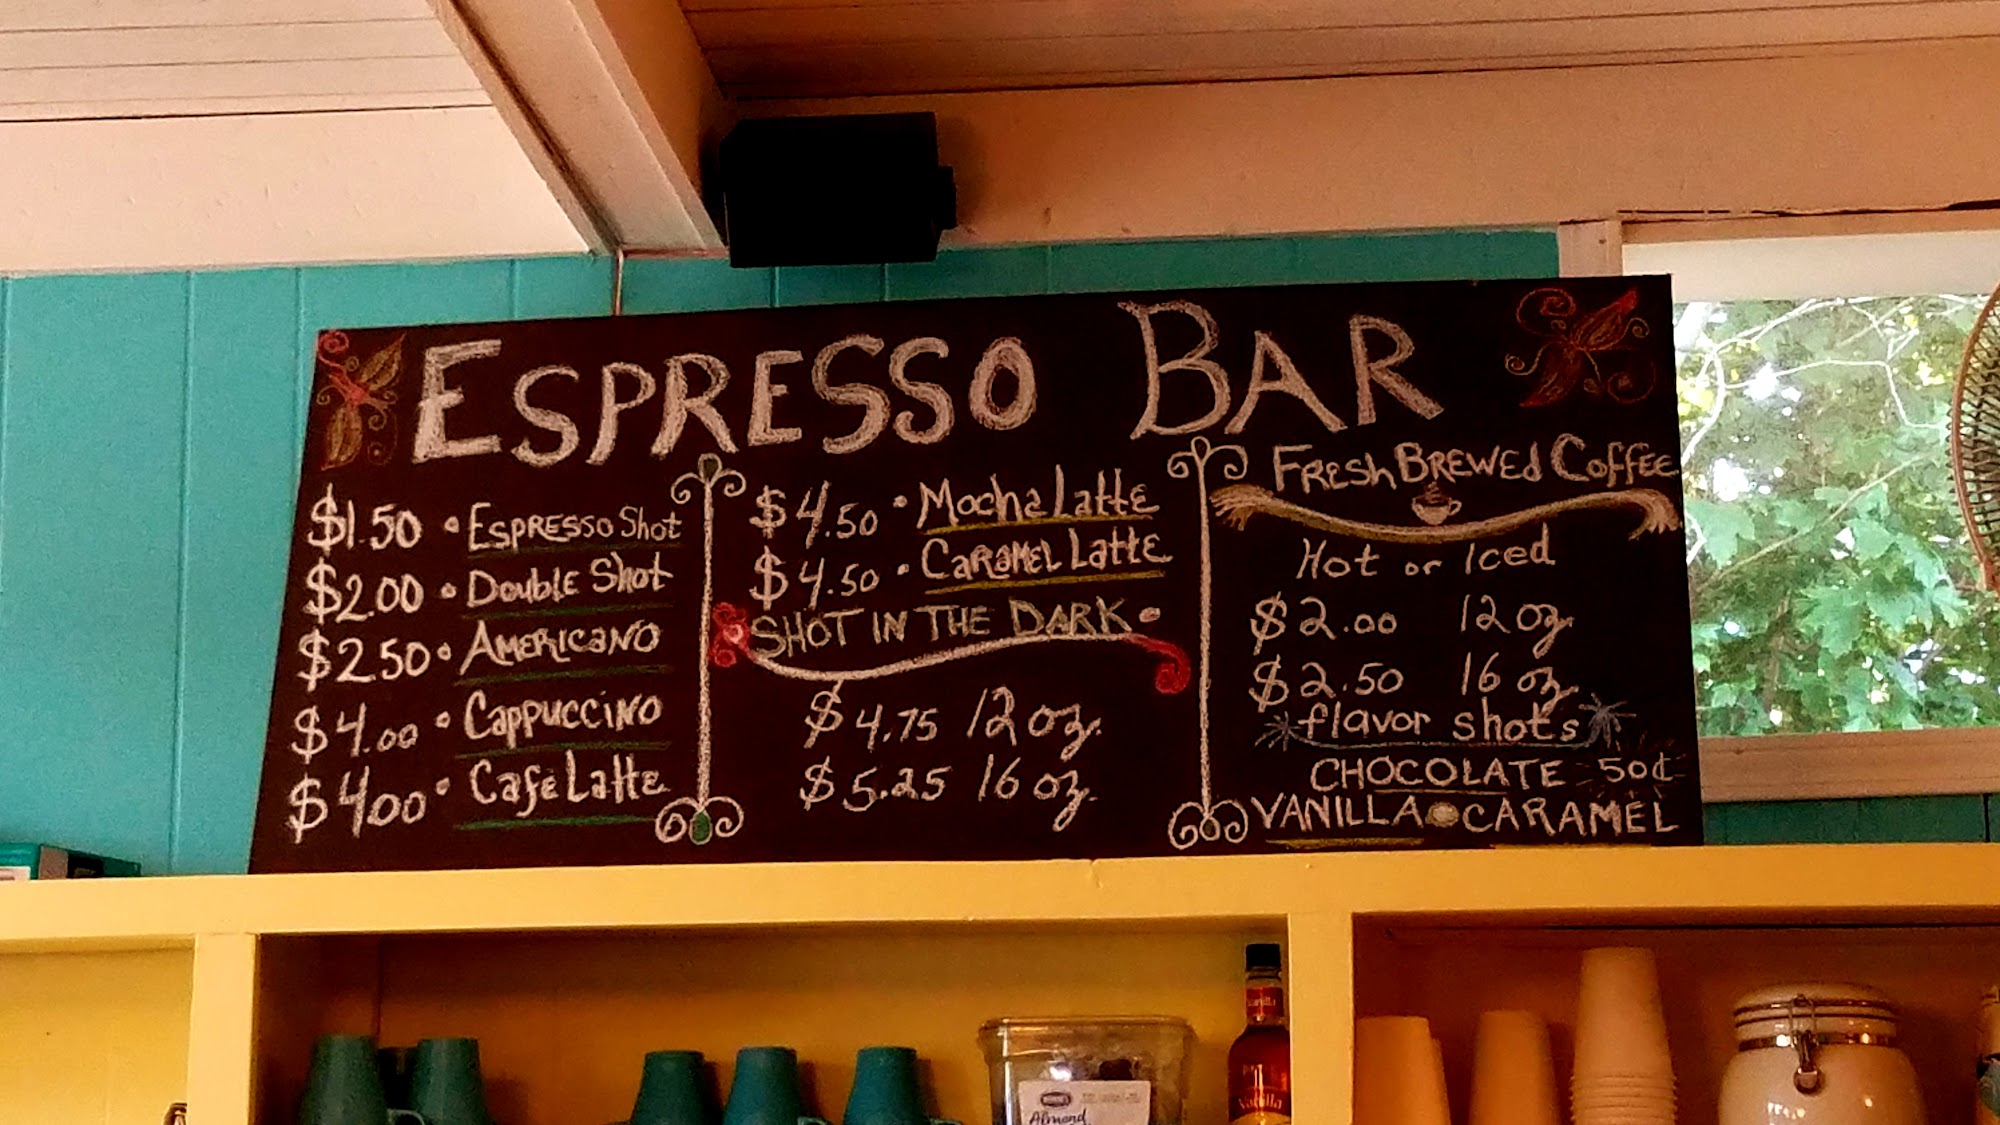 ESPRESSO BAR
$1.50 • ESPRESSO Shot
$2.00 • Double Shot
$2.50 • AMERICANO
$4.00 • Cappuccino
$4.00 • Cafe Latte
$4.50 • Mocha Latte
$4.50 • CARAMEL Latte
SHOT IN THE DARK •
$4.75 12 oz.
$5.25 16 oz.
FRESH BREWED COFFEE
Hot or Iced
$2.00 12 oz.
$2.50 16 oz.
flavor shots
CHOCOLATE 50¢
VANILLA • CARAMEL
Almond
Vanilla